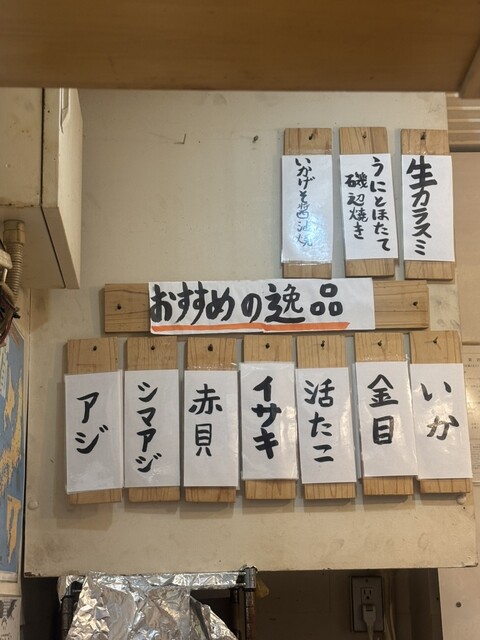 生カラスミ
うにとほたて
磯辺焼き
いかげそ醤油焼
おすすめの逸品
いか
金目
活たこ
イサキ
赤貝
シマアジ
アジ